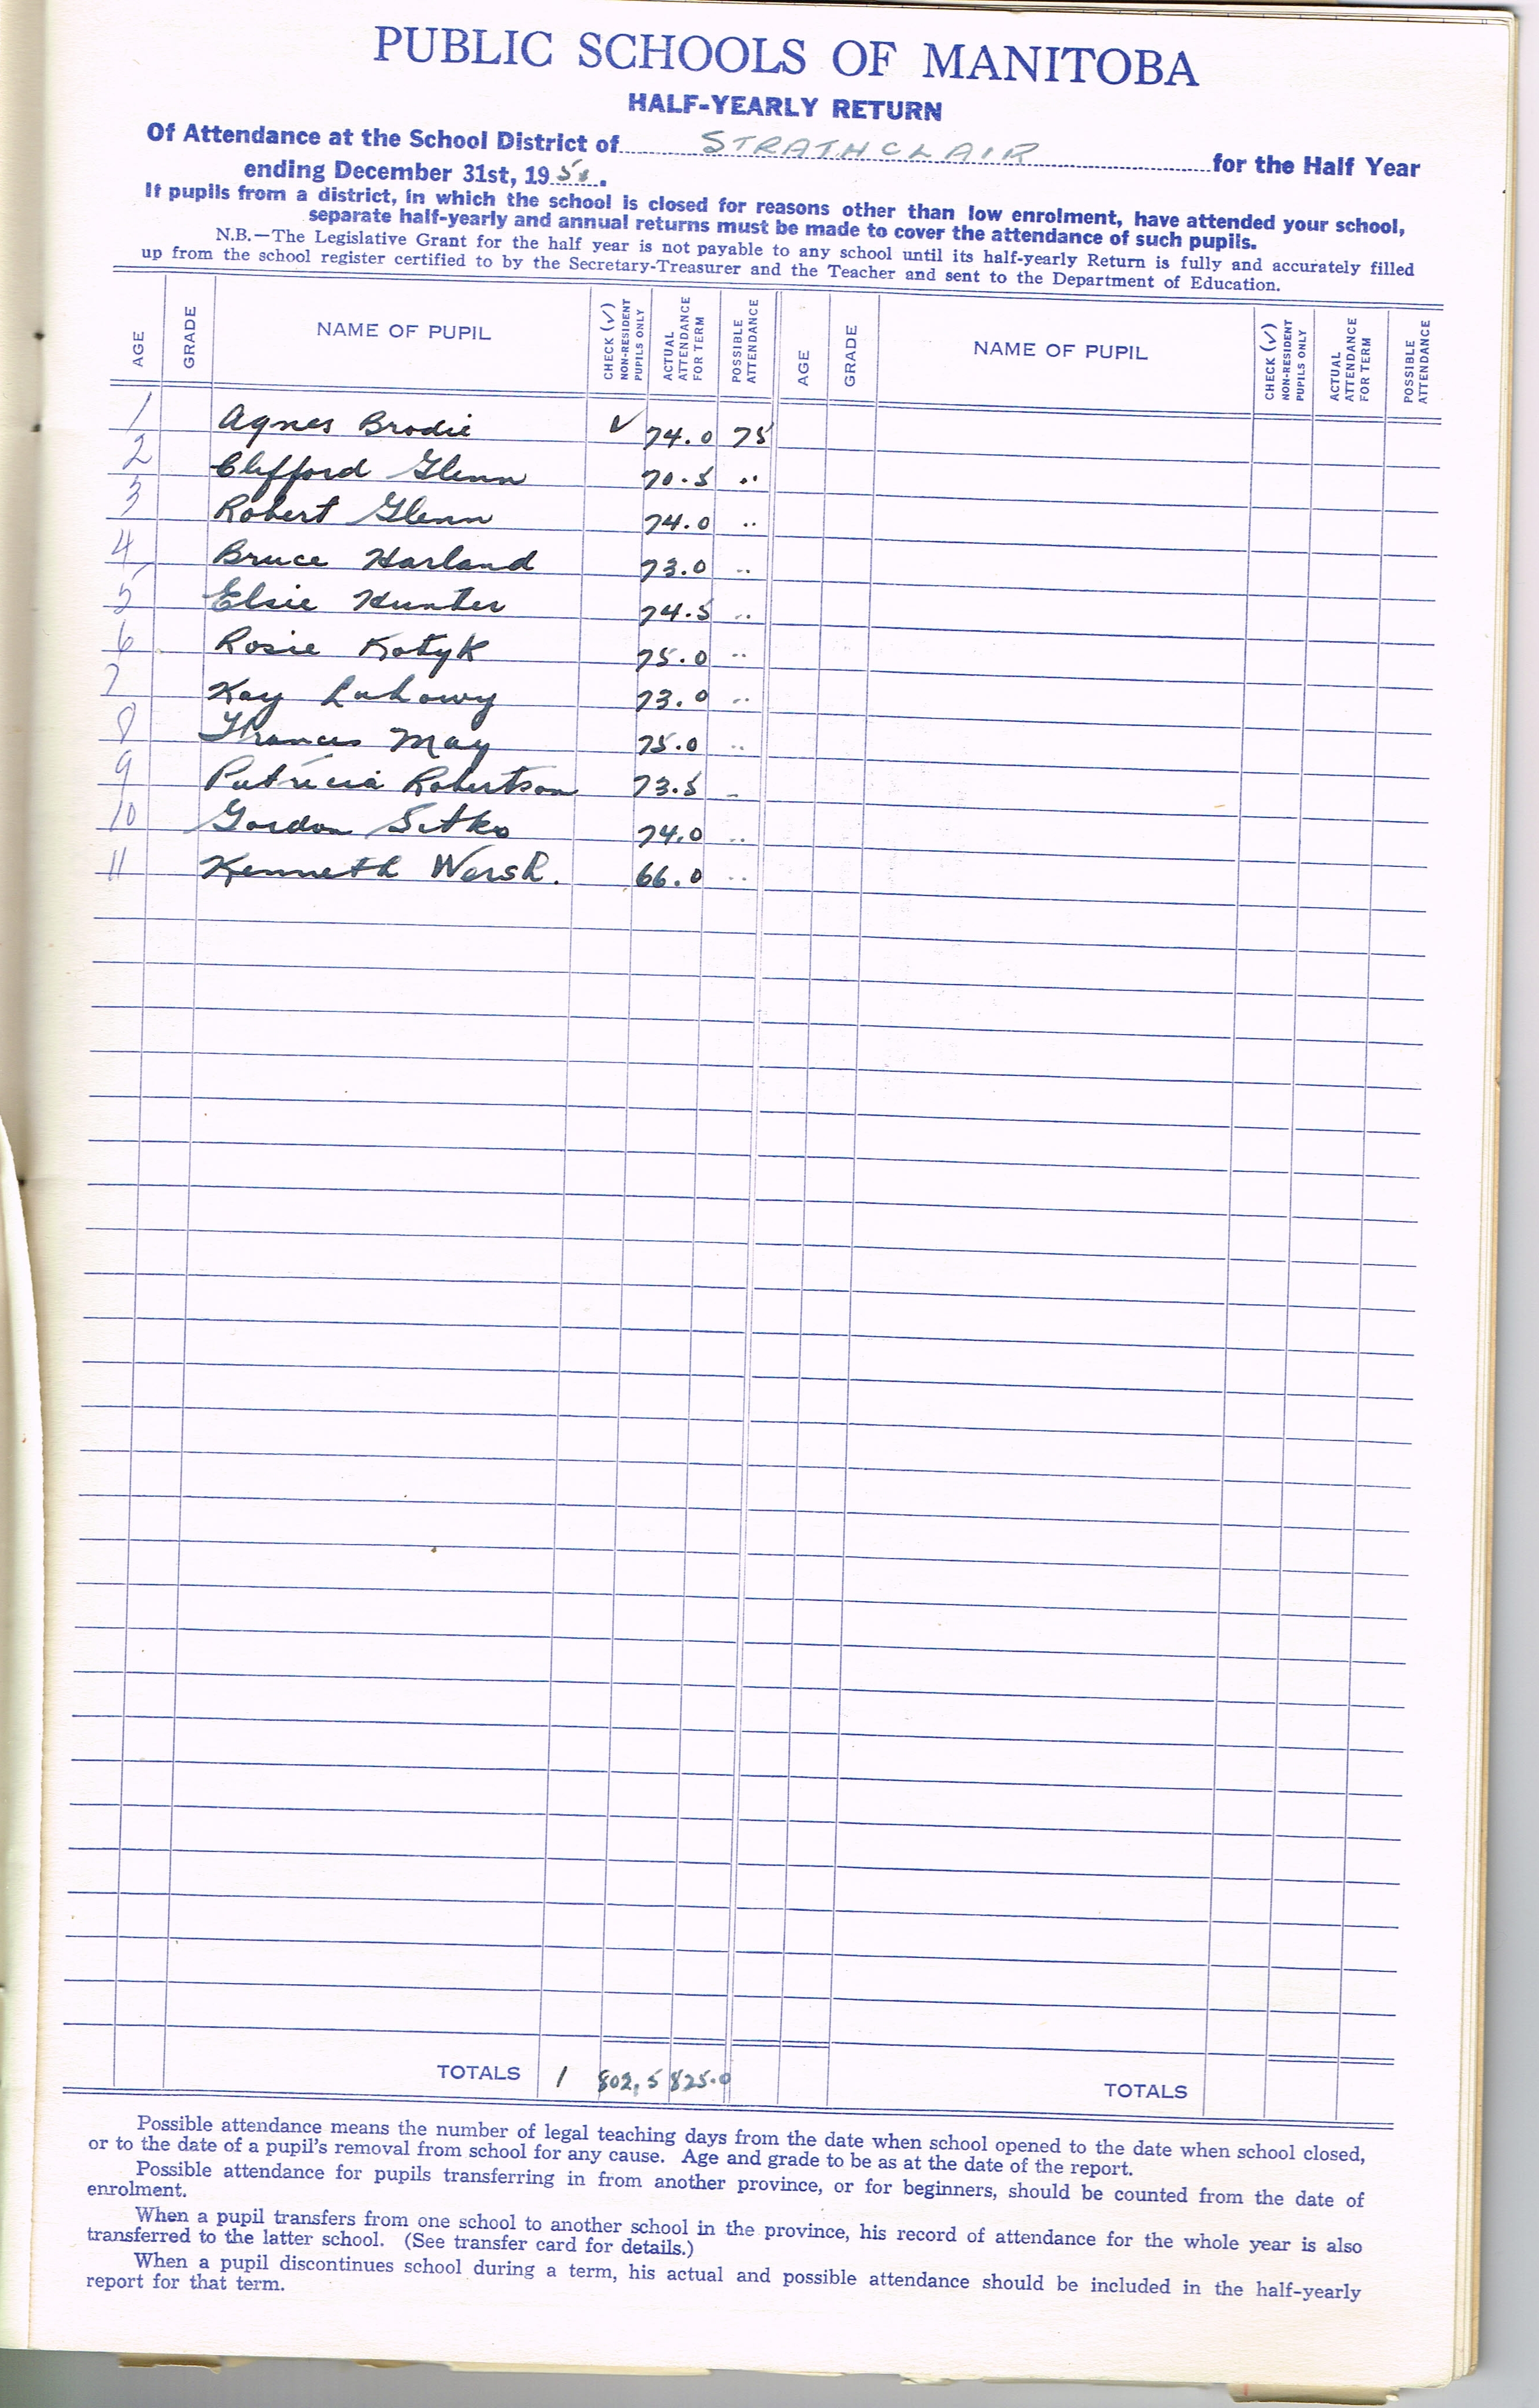 PUBLIC SCHOOLS OF MANITOBA
HALF-YEARLY RETURN
Of Attendance at the School District of STRATHCLAIR for the Half Year
ending December 31st, 1951.
If pupils from a district, in which the school is closed for reasons other than low enrolment, have attended your school,
separate half-yearly and annual returns must be made to cover the attendance of such pupils.
N.B.—The Legislative Grant for the half year is not payable to any school until its half-yearly Return is fully and accurately filled
up from the school register certified to by the Secretary-Treasurer and the Teacher and sent to the Department of Education.
AGE GRADE NAME OF PUPIL CHECK (✓) NON-RESIDENT PUPILS ONLY ACTUAL ATTENDANCE FOR TERM POSSIBLE ATTENDANCE AGE GRADE NAME OF PUPIL CHECK (✓) NON-RESIDENT PUPILS ONLY ACTUAL ATTENDANCE FOR TERM POSSIBLE ATTENDANCE
1 Agnes Brodie ✓ 74.0 75
2 Clifford Glenn 70.5 ..
3 Robert Glenn 74.0 ..
4 Bruce Harland 73.0 ..
5 Elsie Hunter 74.5 ..
6 Rosie Kotyk 75.0 ..
7 Kay Luhowy 73.0 ..
8 Frances May 75.0 ..
9 Patricia Robertson 73.5 ..
10 Gordon Sitko 74.0 ..
11 Kenneth Warsh. 66.0 ..
TOTALS 1 802.5 825.0 TOTALS
Possible attendance means the number of legal teaching days from the date when school opened to the date when school closed,
or to the date of a pupil's removal from school for any cause. Age and grade to be as at the date of the report.
Possible attendance for pupils transferring in from another province, or for beginners, should be counted from the date of
enrolment.
When a pupil transfers from one school to another school in the province, his record of attendance for the whole year is also
transferred to the latter school. (See transfer card for details.)
When a pupil discontinues school during a term, his actual and possible attendance should be included in the half-yearly
report for that term.